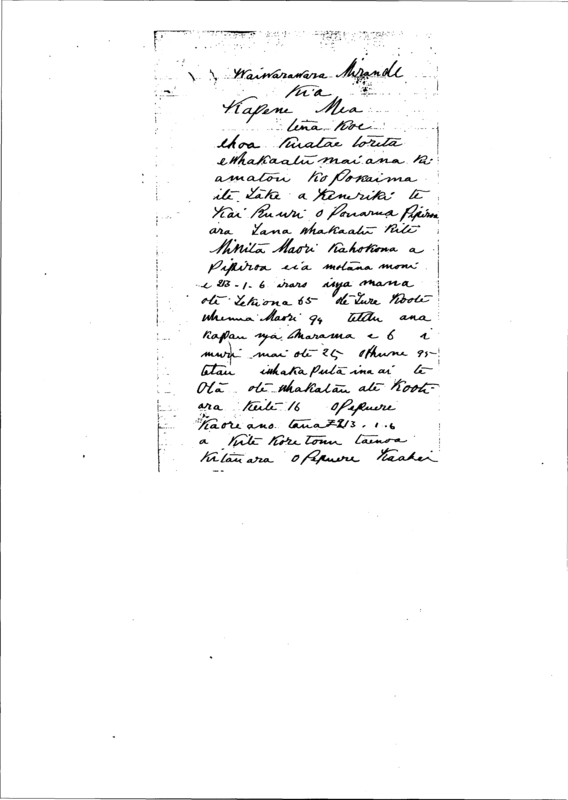 Waiwarawara Mirande
Kia
Kapene Mea
tena Koe
ehoa Kuatae torita
ewhakaatu mai ana Ki
amatou Ko Pokaima
ite Take a Keneriki te
Kai Ruuri o Ponarua Pipiroa
ara Tana whakaatu Kite
Minita Maori Kahokona a
Pipiroa eia motana moni
e 213-1-6 iraro inga mana
ote Tekiona 65 ote Ture Koote
whenua Maori 94 tetau ana
Kapau nga Marama e 6 i
muri mai ote 25 o Hune 95
tetau iwhaka puta ina ai te
Ota ote whakatau ate Koote
ara Keite 16 o Pepuere
Kaore ano tana £213.1.6
a Kite Kore tonu taenoa
Kitaua ra o Pepuere